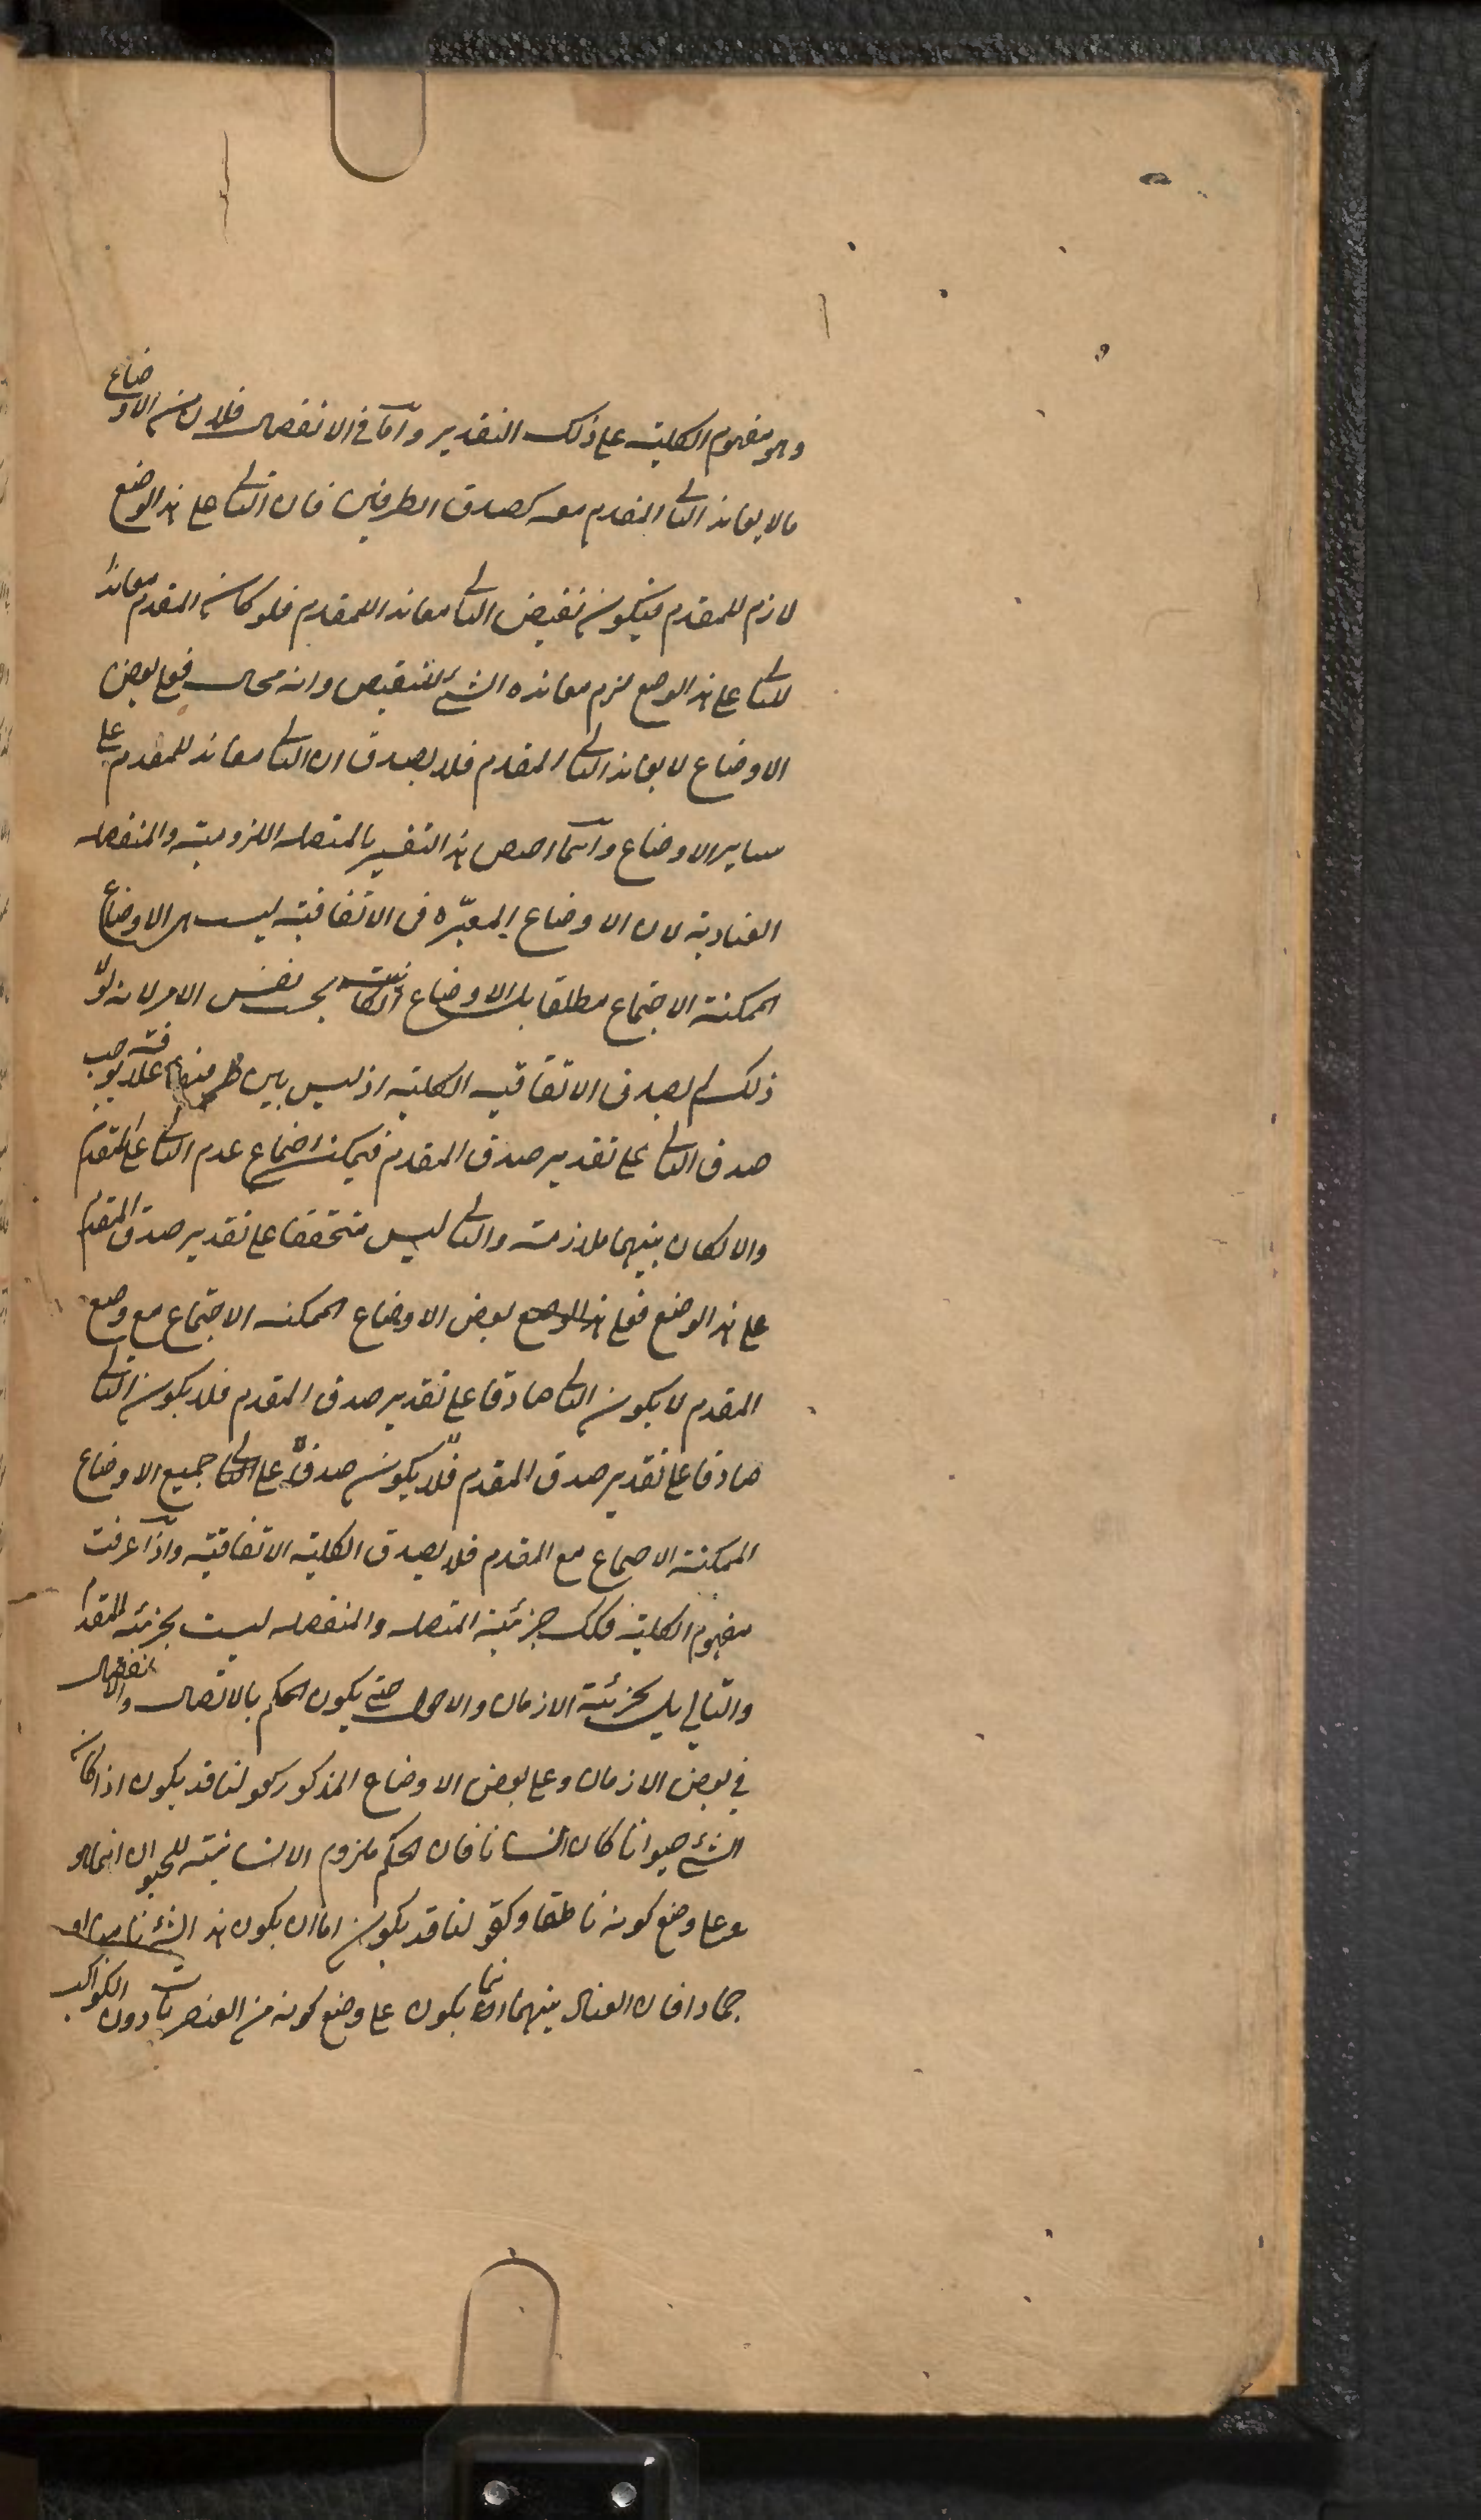 وهو مفهوم الكلية على ذلك التقدير وامّا فى الانفصال فلان من الاوضاع
مالا يعاند التالى المقدم معه كصدق الطرفين فان التالى على هذا الوضع
لازم للمقدم فيكون نقيض التالى معاندا للمقدم فلو كان المقدم معاندا
للتالى على هذا الوضع لزم معانده الشئ للنقيض وانه محال فعلى بعض
الاوضاع لا يعاند التالى المقدم فلا يصدق ان التالى معاند للمقدم على
ساير الاوضاع وانّما خصص هذا التفسير بالمتصله اللزومية والمنفصله
العنادية لان الاوضاع المعتبّره فى الاتفاقية ليست هى الاوضاع
الممكنة الاجتماع مطلقا بل الاوضاع الكائنة بحسب نفس الامر لانه لولا
ذلك لم يصدق الاتفاقيه الكلية اذ ليس بين طرفيها علاقة يوجب
صدق التالى على تقدير صدق المقدم فيمكن اجتماع عدم التالى على المقدم
والا لكان بينهما ملازمة والتالى ليس متحققا على تقدير صدق المقدم
على هذا الوضع فعلى هذا الوضع بعض الاوضاع الممكنه الاجتماع مع وضع
المقدم لا يكون التالى صادقا على تقدير صدق المقدم فلا يكون التالى
صادقا على تقدير صدق المقدم فلا يكون صدق على التالى جميع الاوضاع
الممكنة الاجتماع مع المقدم فلا يصدق الكلية الاتفاقية واذا عرفت
مفهوم الكلية فكك جزئية المتصله والمنفصله ليست بجزئية المقدم
والتالى بل بجزئية الازمان والاحوال حتى يكون الحكم بالاتصال والانفصال
في بعض الازمان وعلى بعض الاوضاع المذكور كقولنا قد يكون اذا كان
الشئ حيوانا كان انسانا فان الحكم ملزوم الانسانية للحيوان انما هو
على وضع كونه ناطقا وكقولنا قد يكون اما ان يكون هذا الشئ ناميا او
جمادا فان العناد بينهما انما يكون على وضع كونه من العنصريات دون الكواكب